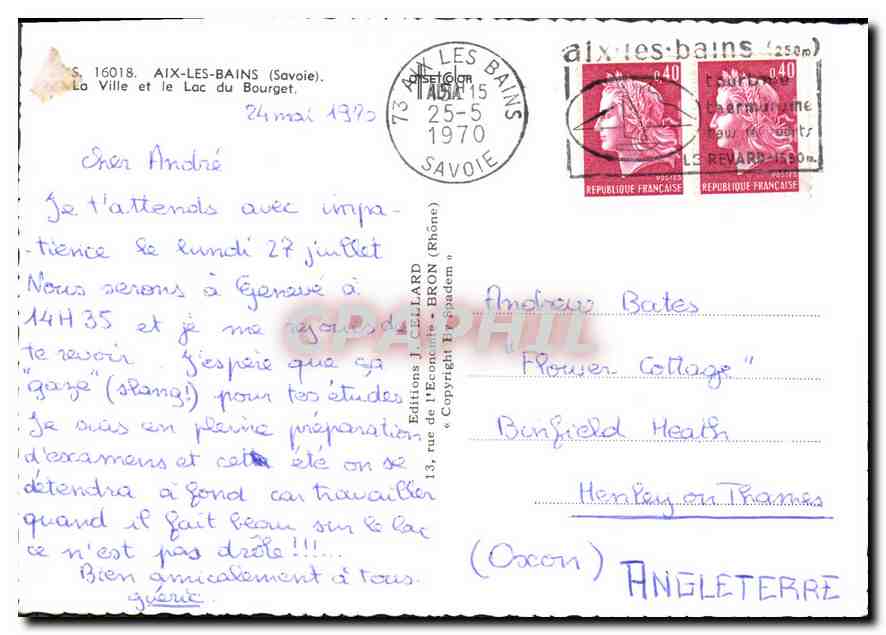 S. 16018. AIX-LES-BAINS (Savoie).
La Ville et le Lac du Bourget.
24 mai 1970
Cher André
Je t'attends avec impa-
-tience le lundi 27 juillet
Nous serons à Genevé à
14H35 et je me rejouis de
te revoir. J'espère que ça
"gaze" (slang!) pour tes études
Je suis en pleine préparation
d'examens et cet été on se
détendra à fond car travailler
quand il fait beau sur le lac
ce n'est pas drôle!!!...
Bien amicalement à tous.
73 AIX LES BAINS
15
25-5
1970
SAVOIE
aix-les-bains (250m)
tourisme
thermalisme
LE REVARD 1550m.
0,40
POSTES
REPUBLIQUE FRANÇAISE
0,40
POSTES
REPUBLIQUE FRANÇAISE
Editions J. CELLARD
13, rue de l'Economie - BRON (Rhône)
« Copyright By Spadem »
CPAPHIL
Andrew Bates
"Flower Cottage"
Binfield Heath
Henley on Thames
(Oxon)
ANGLETERRE